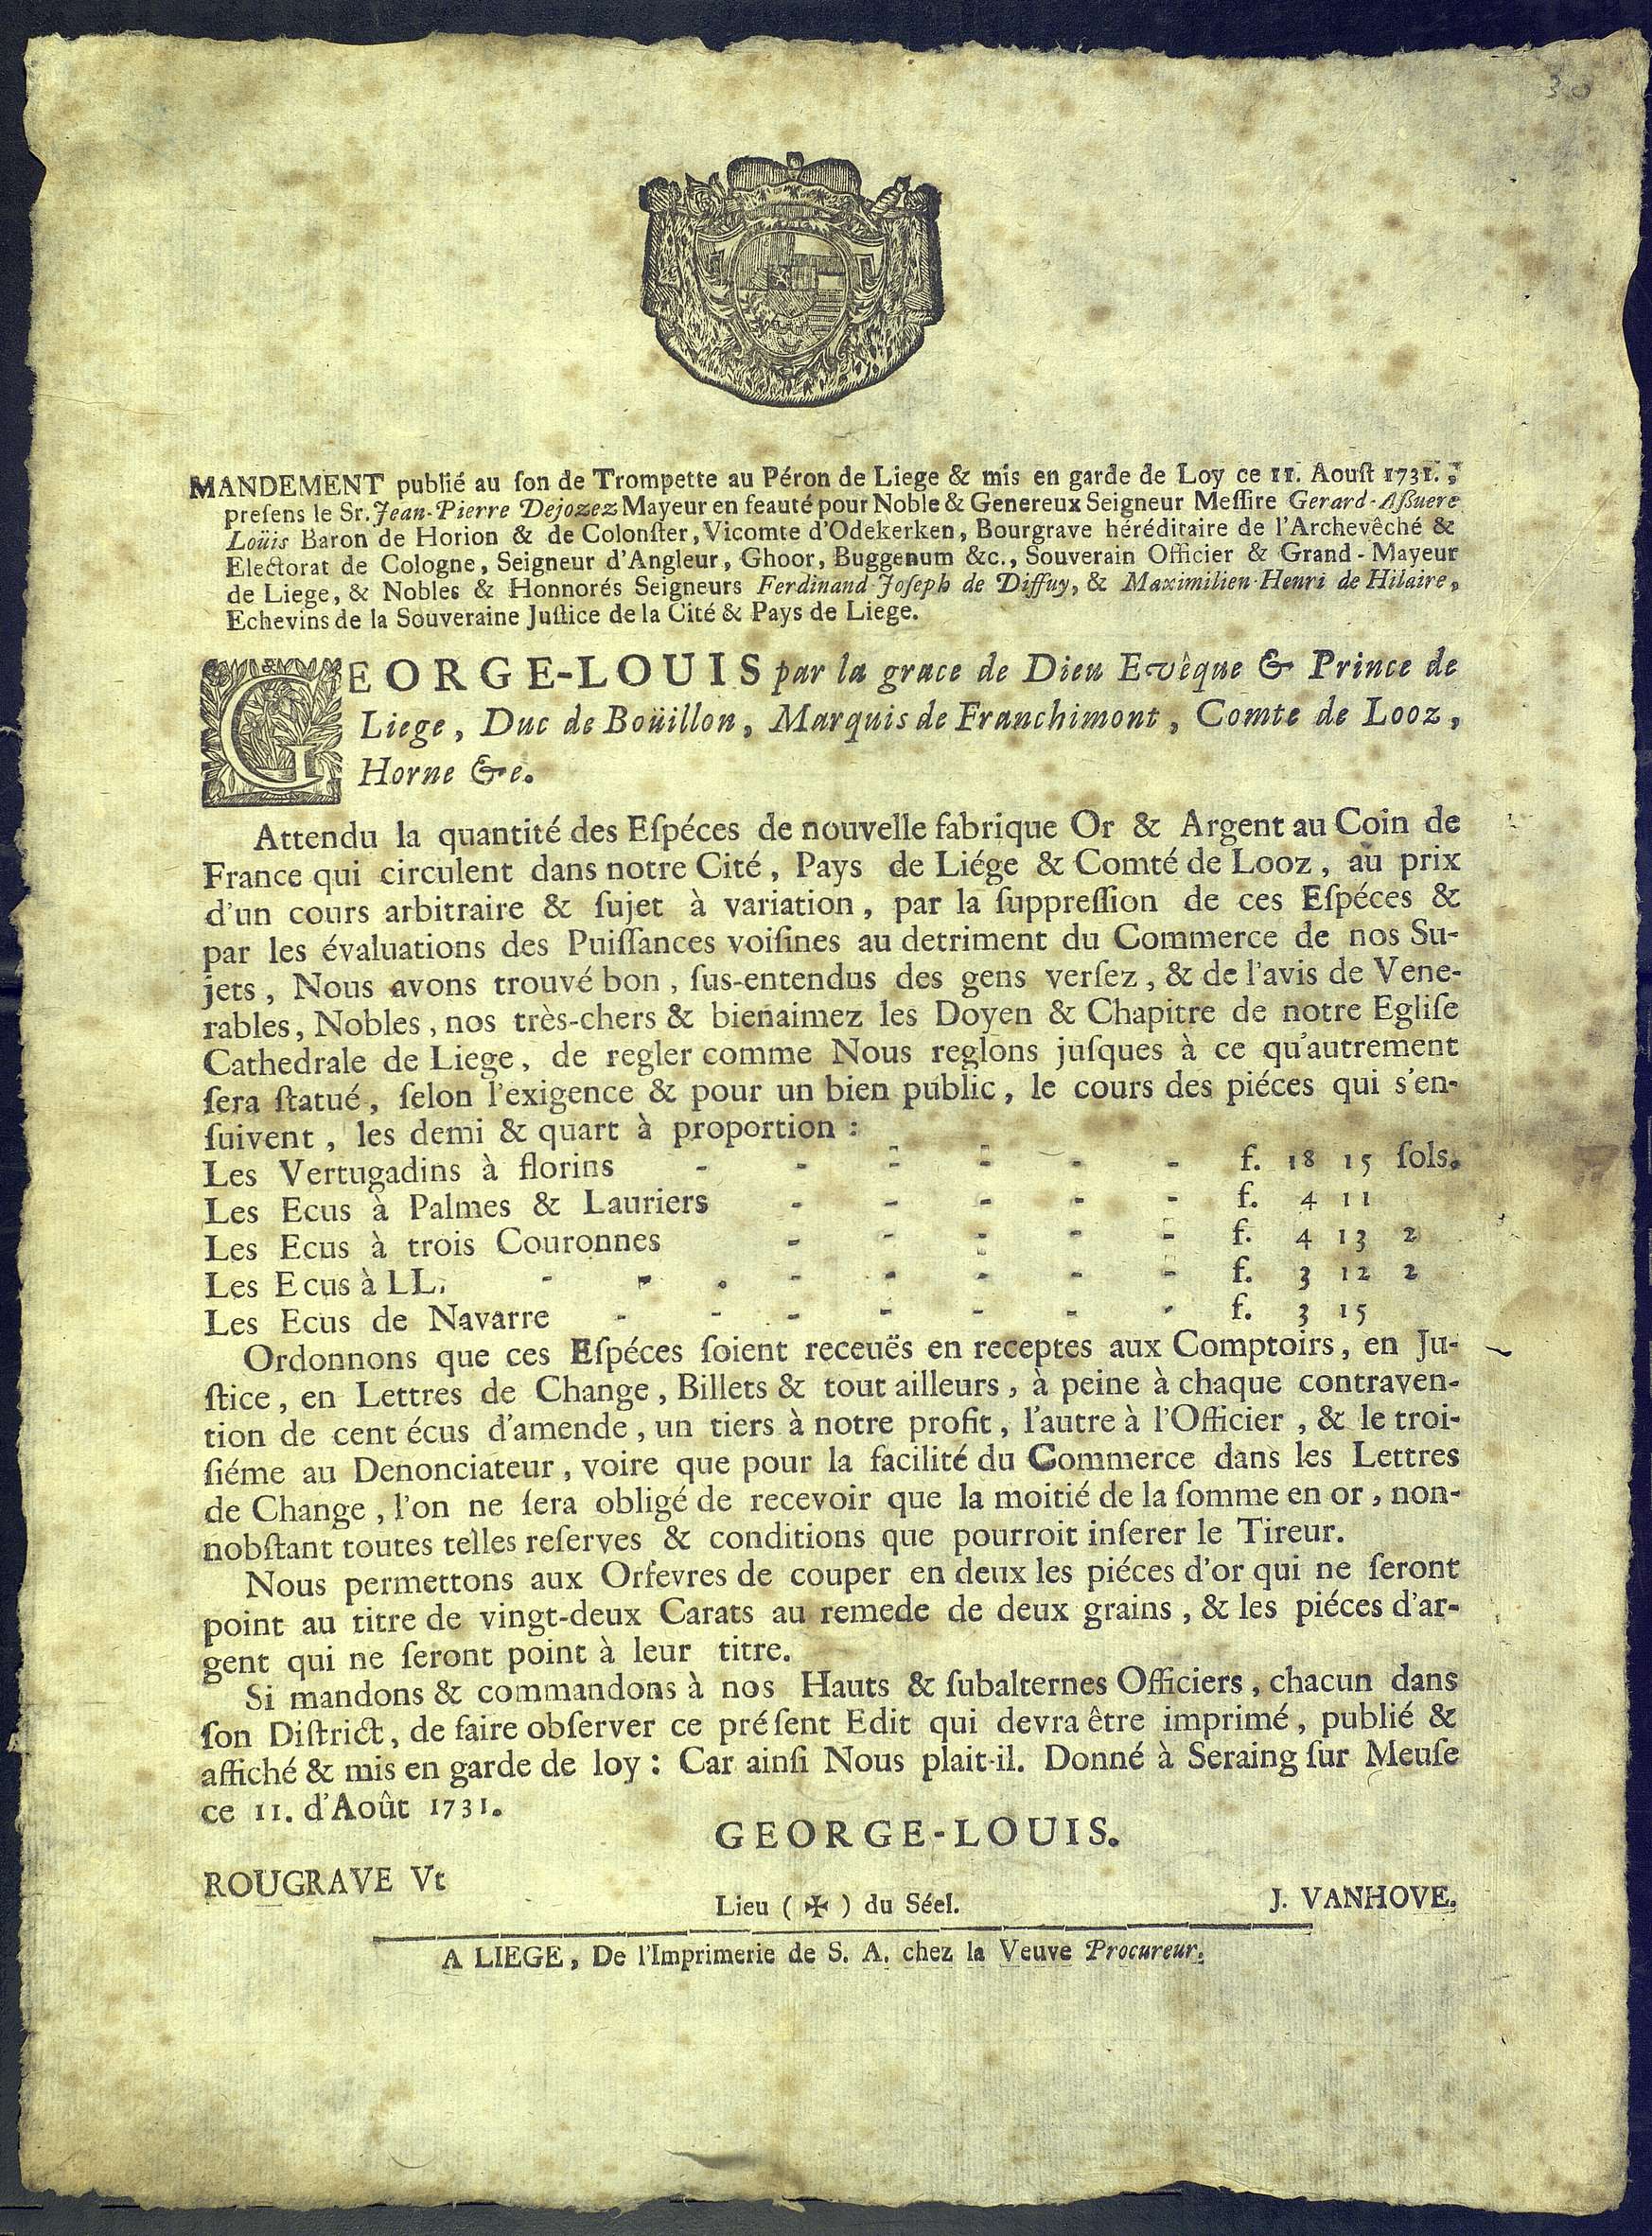 30
MANDEMENT publié au ſon de Trompette au Péron de Liege & mis en garde de Loy ce 11. Aouſt 1731.,
preſens le Sr. Jean-Pierre Dejozez Mayeur en feauté pour Noble & Genereux Seigneur Meſſire Gerard-Aſſuere
Loüis Baron de Horion & de Colonſter, Vicomte d'Odekerken, Bourgrave héréditaire de l'Archevêché &
Electorat de Cologne, Seigneur d'Angleur, Ghoor, Buggenum &c., Souverain Officier & Grand-Mayeur
de Liege, & Nobles & Honnorés Seigneurs Ferdinand Joſeph de Diffuy, & Maximilien-Henri de Hilaire,
Echevins de la Souveraine Juſtice de la Cité & Pays de Liege.
GEORGE-LOUIS par la grace de Dieu Evêque & Prince de
Liege, Duc de Boüillon, Marquis de Franchimont, Comte de Looz,
Horne &e.
Attendu la quantité des Eſpéces de nouvelle fabrique Or & Argent au Coin de
France qui circulent dans notre Cité, Pays de Liége & Comté de Looz, au prix
d'un cours arbitraire & ſujet à variation, par la ſuppreſſion de ces Eſpéces &
par les évaluations des Puiſſances voiſines au detriment du Commerce de nos Su-
jets, Nous avons trouvé bon, ſus-entendus des gens verſez, & de l'avis de Vene-
rables, Nobles, nos très-chers & bienaimez les Doyen & Chapitre de notre Egliſe
Cathedrale de Liege, de regler comme Nous reglons juſques à ce qu'autrement
ſera ſtatué, ſelon l'exigence & pour un bien public, le cours des piéces qui s'en-
ſuivent, les demi & quart à proportion :
Les Vertugadins à florins - - - - - - f. 18 15 ſols.
Les Ecus à Palmes & Lauriers - - - - - f. 4 11
Les Ecus à trois Couronnes - - - - - f. 4 13 2
Les Ecus à LL. - - - - - - - - f. 3 12 2
Les Ecus de Navarre - - - - - - - f. 3 15
Ordonnons que ces Eſpéces ſoient receuës en receptes aux Comptoirs, en Ju-
ſtice, en Lettres de Change, Billets & tout ailleurs, à peine à chaque contraven-
tion de cent écus d'amende, un tiers à notre profit, l'autre à l'Officier, & le troi-
ſiéme au Denonciateur, voire que pour la facilité du Commerce dans les Lettres
de Change, l'on ne ſera obligé de recevoir que la moitié de la ſomme en or, non-
nobſtant toutes telles reſerves & conditions que pourroit inſerer le Tireur.
Nous permettons aux Orfevres de couper en deux les piéces d'or qui ne ſeront
point au titre de vingt-deux Carats au remede de deux grains, & les piéces d'ar-
gent qui ne ſeront point à leur titre.
Si mandons & commandons à nos Hauts & ſubalternes Officiers, chacun dans
ſon Diſtrict, de faire obſerver ce préſent Edit qui devra être imprimé, publié &
affiché & mis en garde de loy : Car ainſi Nous plait-il. Donné à Seraing ſur Meuſe
ce 11. d'Août 1731.
GEORGE-LOUIS.
ROUGRAVE Vt
Lieu ( ✠ ) du Séel.
J. VANHOVE.
A LIEGE, De l'Imprimerie de S. A. chez la Veuve Procureur.